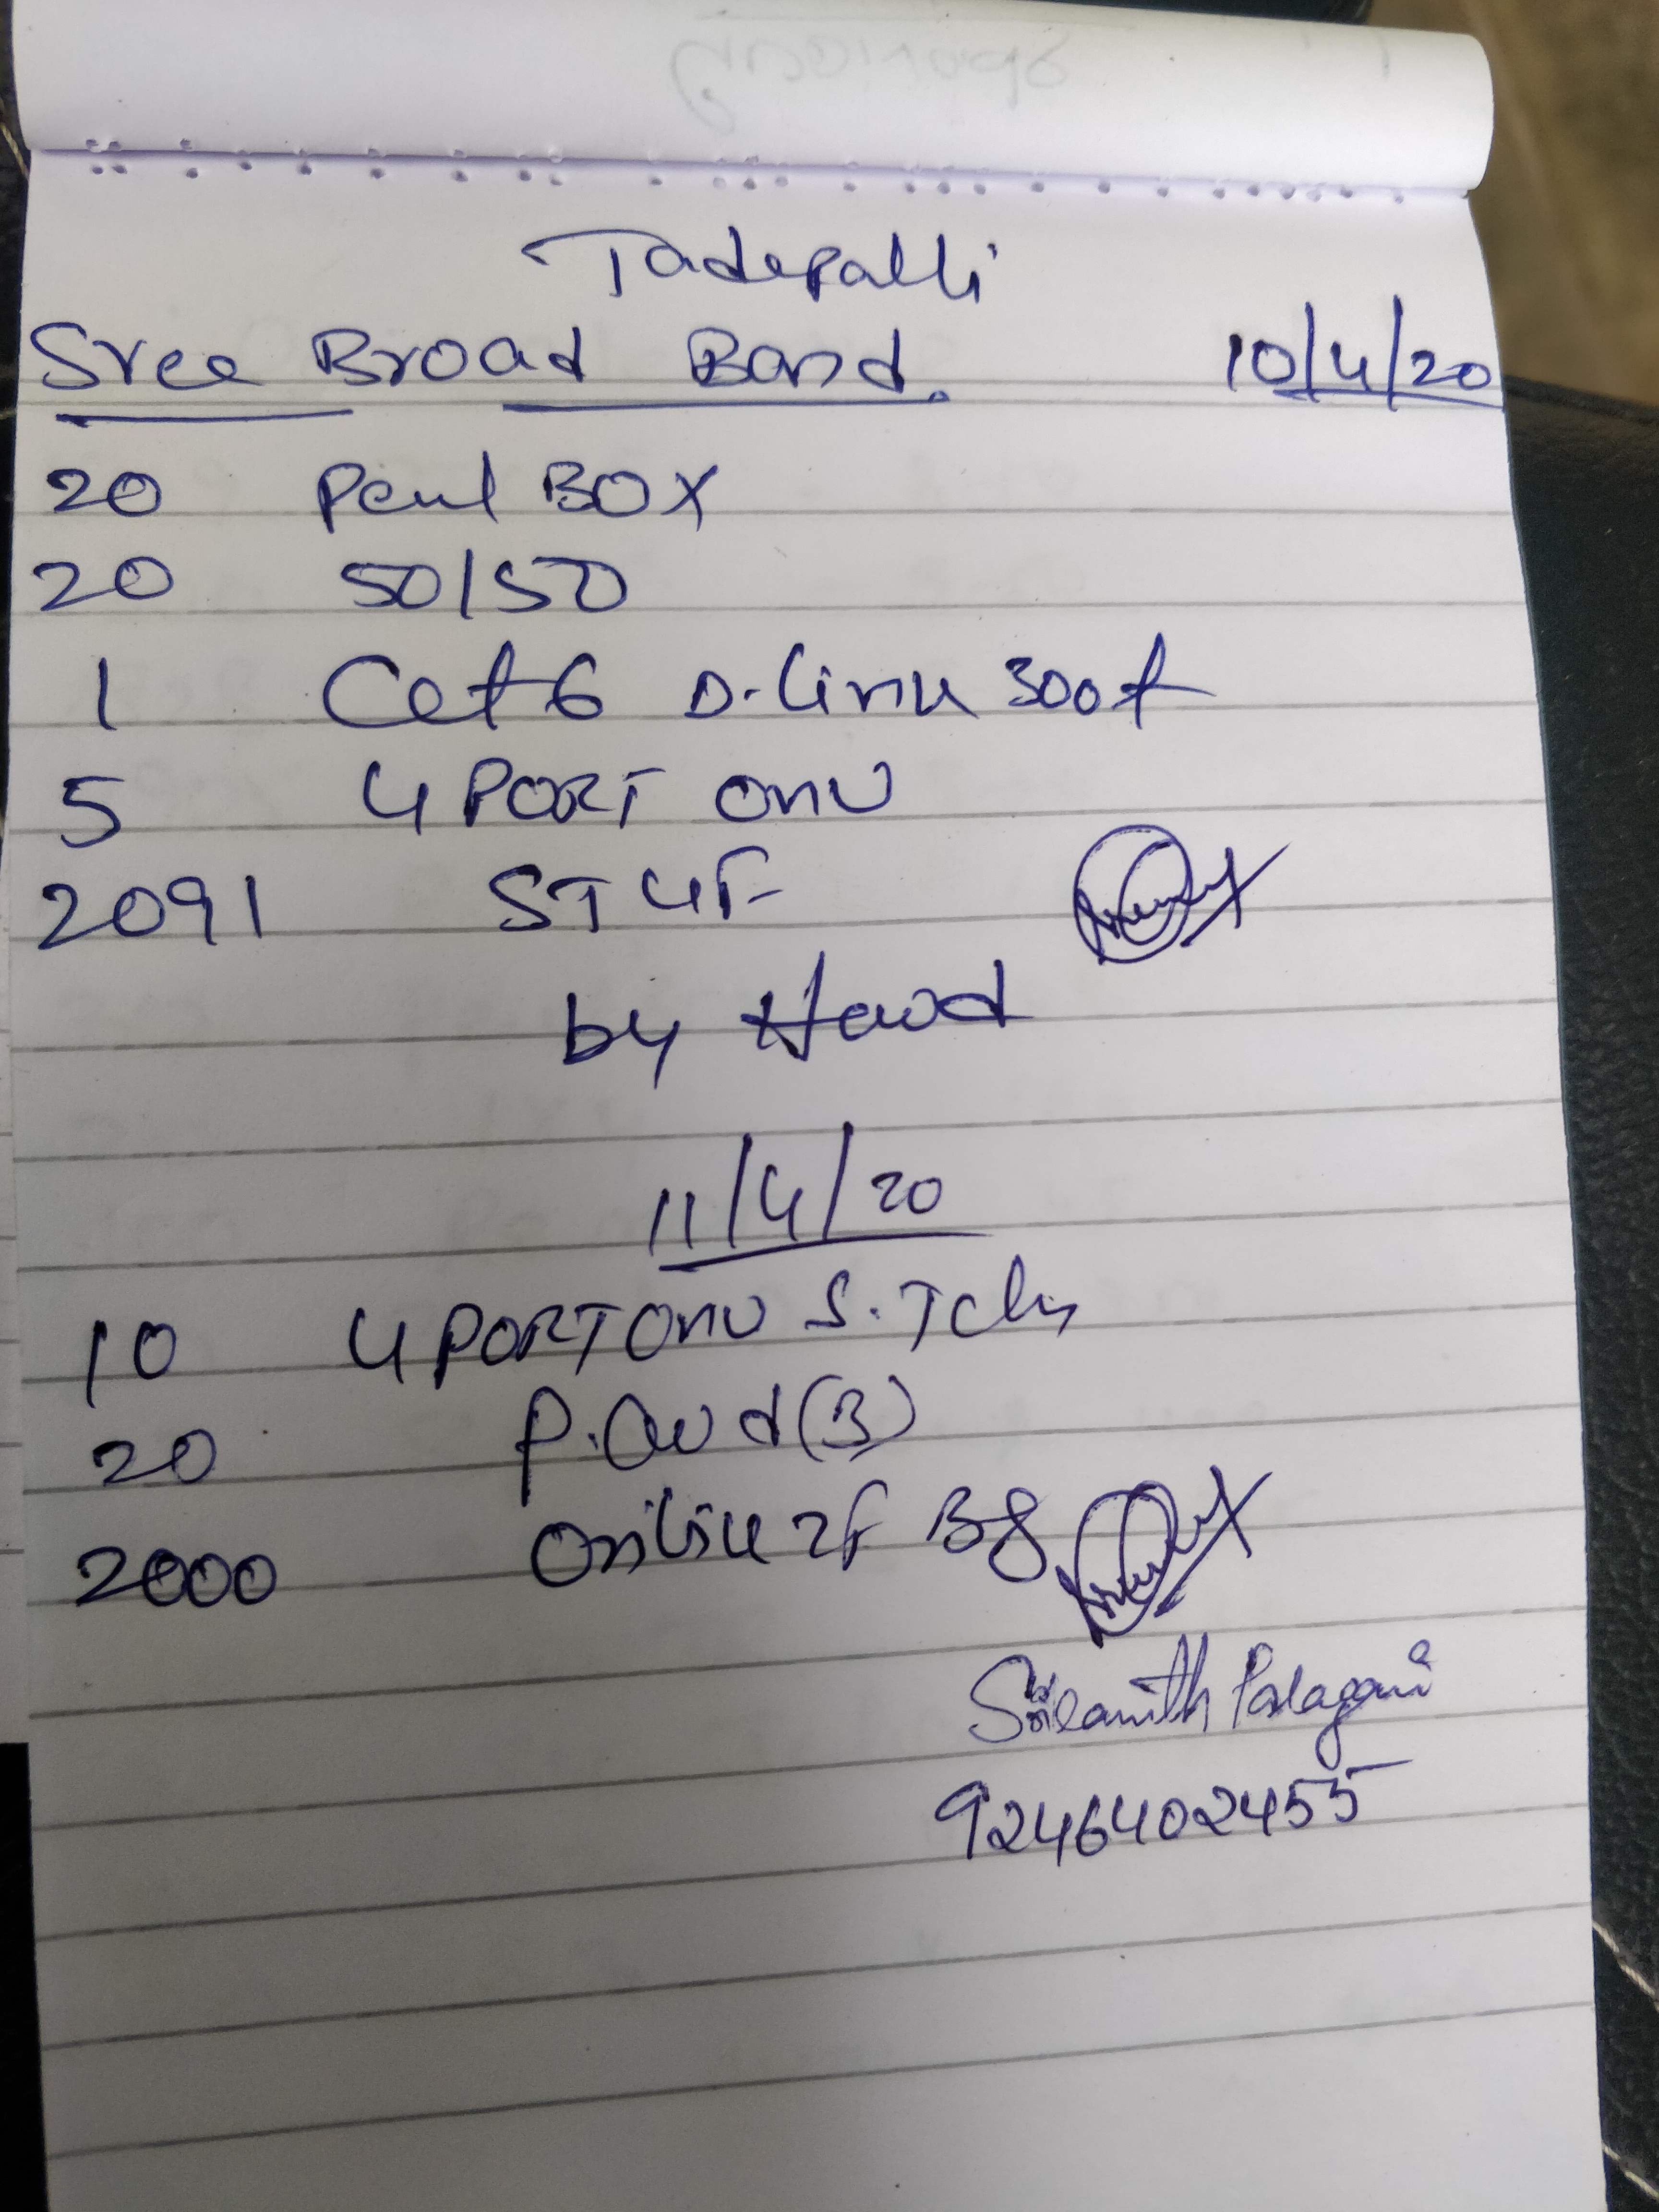 Tadepalli
Sree Broad Band. 10/4/20
20 Penl BOX
20 50/50
1 Cat6 D-Link 300 f
5 4 PORT ONU
2091 ST 4F
by Hand
11/4/20
10 4 PORT ONU S.Tch
20 P. (B)
2000 2F
9246402455